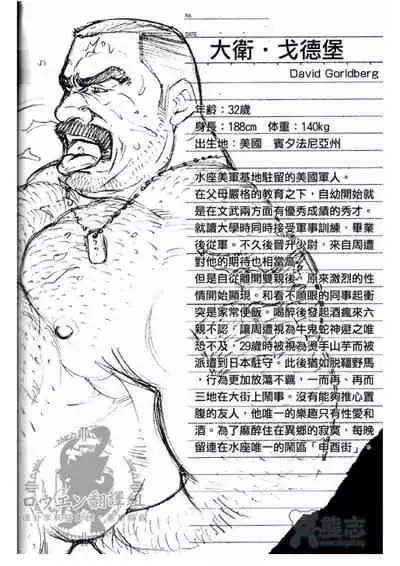 No.
DATE
大衛・戈德堡
David Goridberg
年齡：32歲
身長：188cm　体重：140kg
出生地：美國　賓夕法尼亞州
水座美軍基地駐留的美國軍人。
在父母嚴格的教育之下，自幼開始就
是在文武兩方面有優秀成績的秀才。
就讀大學時同時接受軍事訓練，畢業
後從軍。不久後晉升少尉，來自周遭
對他的期待也相當高。
但是自從離開雙親後，原來激烈的性
情開始顯現。和看不順眼的同事起衝
突是家常便飯。喝醉後發起酒瘋來六
親不認，讓周遭視為牛鬼蛇神避之唯
恐不及，29歲時被視為燙手山芋而被
派遣到日本駐守。此後猶如脫韁野馬
，行為更加放蕩不羈，一而再、再而
三地在大街上鬧事。沒有能夠推心置
腹的友人，他唯一的樂趣只有性愛和
酒。為了麻醉住在異鄉的寂寞，每晚
留連在水座唯一的鬧區「申酉街」。
ロウエン翻譯組
熊志